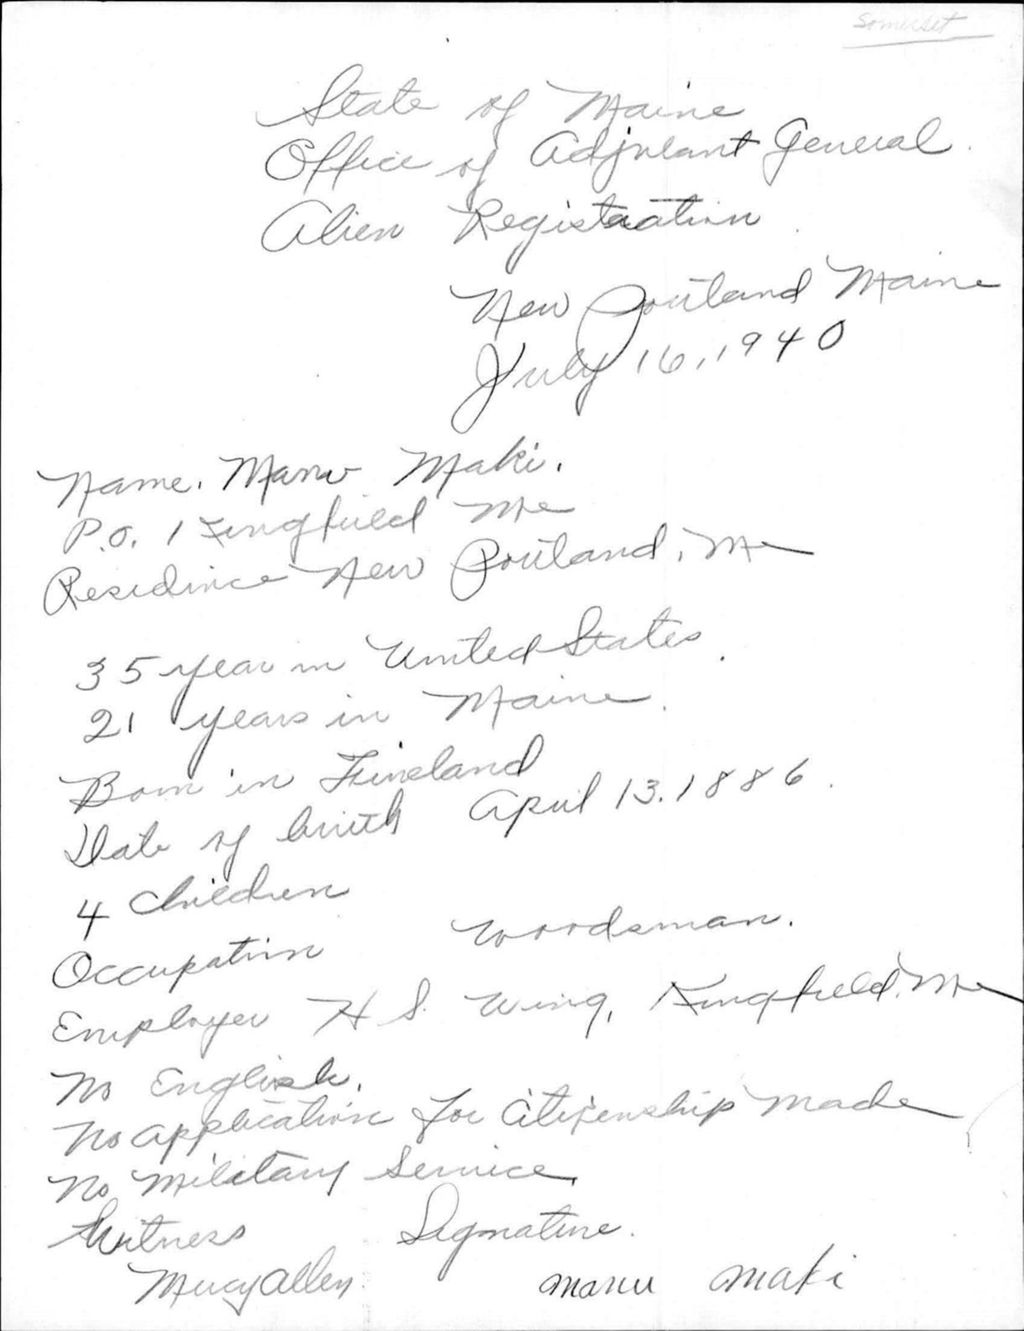 Somerset
State of Maine
Office of Adjutant General
Alien Registration
New Portland Maine
July 16, 1940
Name. Manu Maki.
P.O. Kingfield Me
Residince New Portland, Me
35 year in United States.
21 years in Maine.
Born in Fineland
Date of birth April 13. 1886.
4 Children
Occupation Woodsman.
Employer H S. Wing, Kingfield. Me
No English.
No application for citizenship made
No Military Service
Witness Signature.
Mercy Allen. Manu Maki